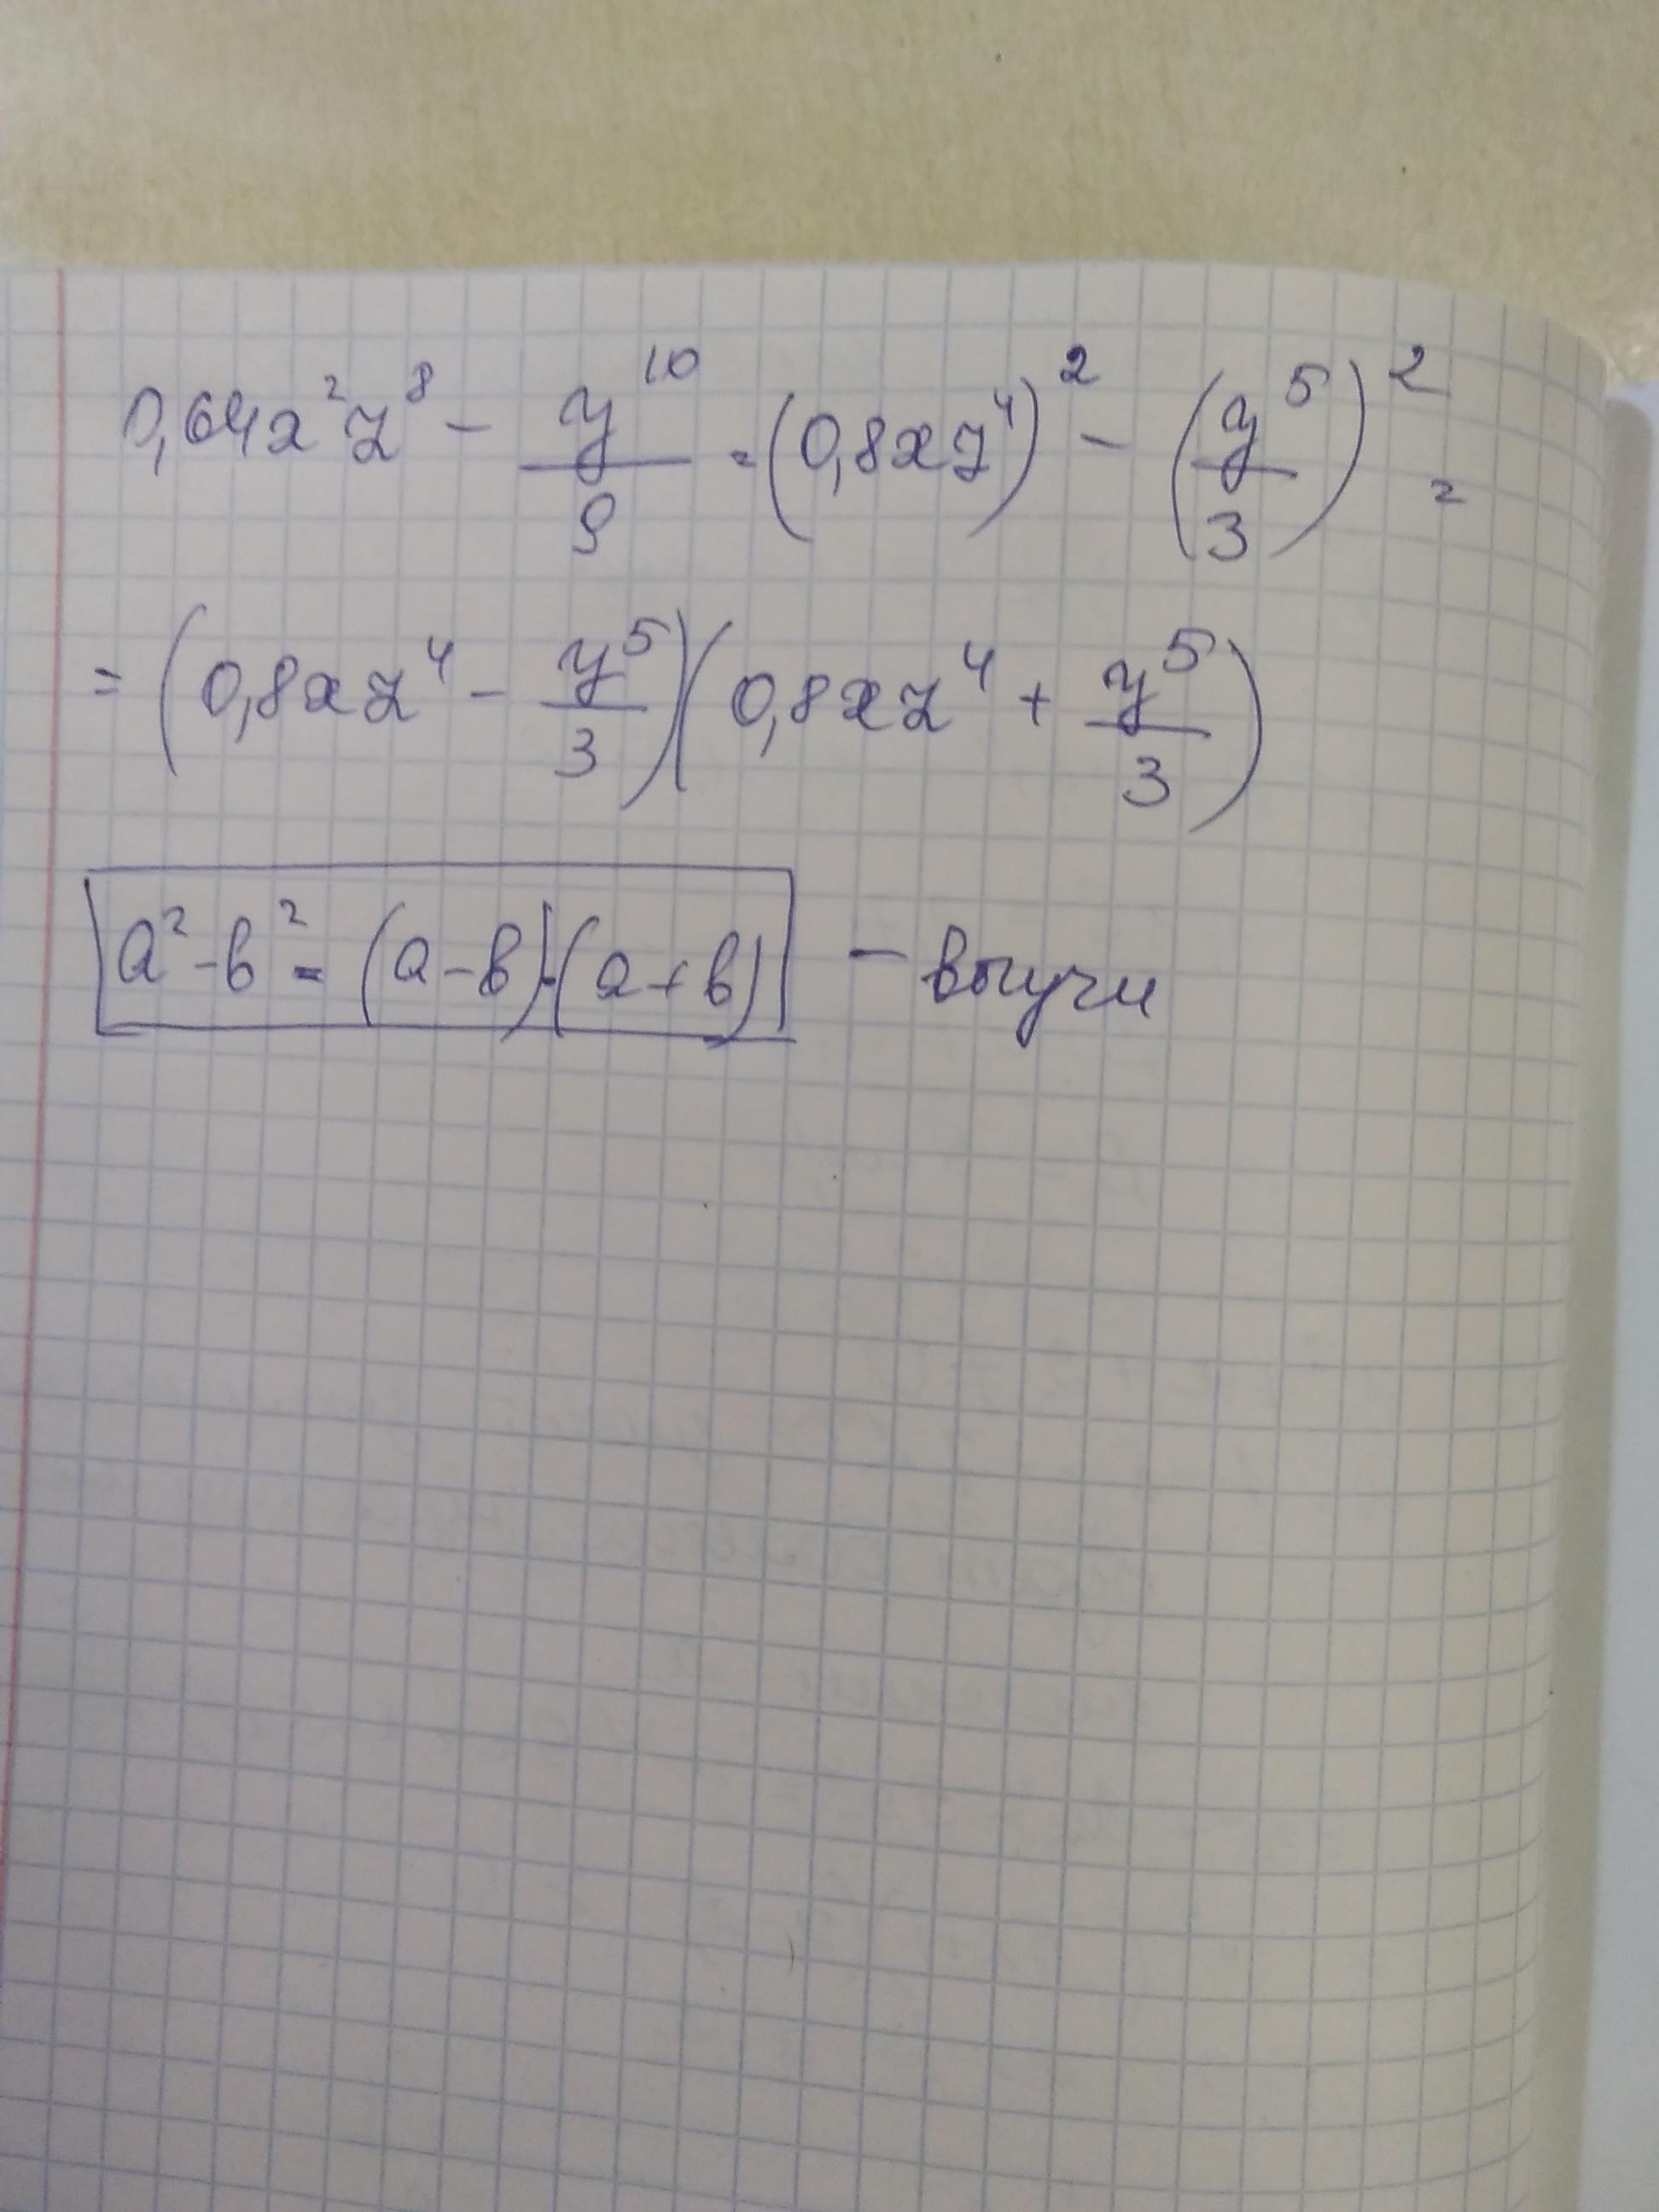 0,64x²z⁸ - y¹⁰/9 = (0,8xz⁴)² - (y⁵/3)² =
= (0,8xz⁴ - y⁵/3)(0,8xz⁴ + y⁵/3)
a² - в² = (a - в)·(a + в) - выучи